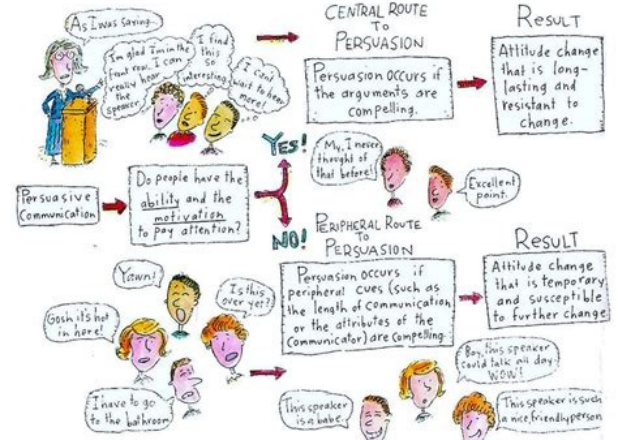 As I was saying...
I'm glad I'm in the
front row. I can
really hear
the
speaker.
I find
this
so
interesting
I can't
wait to hear
more!
CENTRAL ROUTE
TO
PERSUASION
Persuasion occurs if
the arguments are
compelling.
RESULT
Attitude change
that is long-
lasting and
resistant to
change.
YES!
My, I never
thought of
that before!
Excellent
point.
Persuasive
Communication
Do people have the
ability and the
motivation
to pay attention?
NO!
PERIPHERAL ROUTE
TO
PERSUASION
Persuasion occurs if
peripheral cues (such as
the length of communication
or the attributes of the
communicator) are compelling.
RESULT
Attitude change
that is temporary
and susceptible
to further change
Yawn!
Is this
over yet?
Gosh it's hot
in here!
I have to go
to the bathroom
Boy, this speaker
could talk all day.
WOW!
This speaker
is a babe
This speaker is such
a nice, friendly person